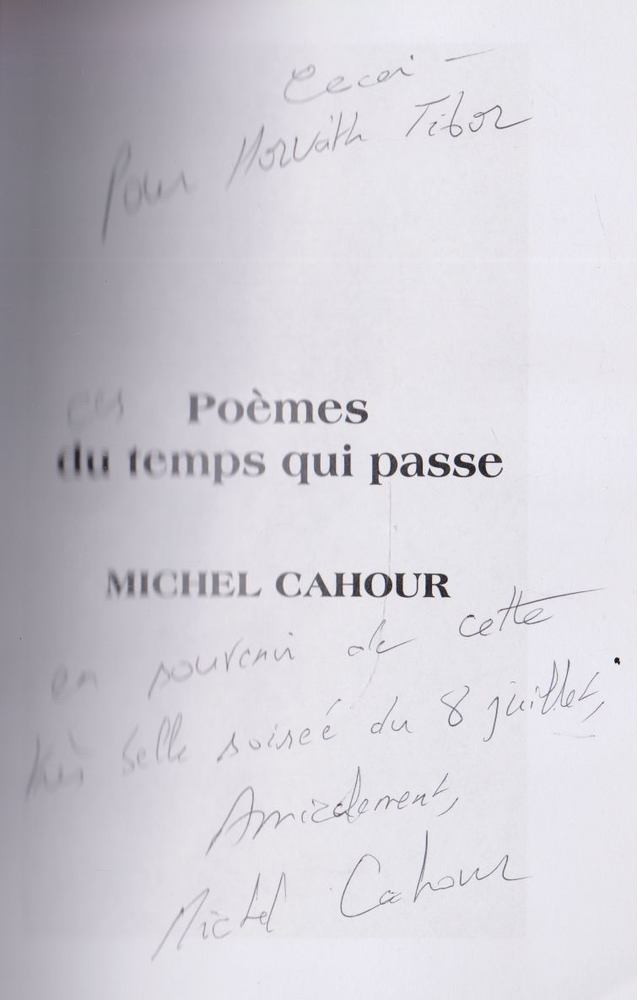 Cecei –
Pour Horváth Tibor
ces Poèmes
du temps qui passe
MICHEL CAHOUR
en souvenir de cette
très belle soireé du 8 juillet,
Amicalement,
Michel Cahour